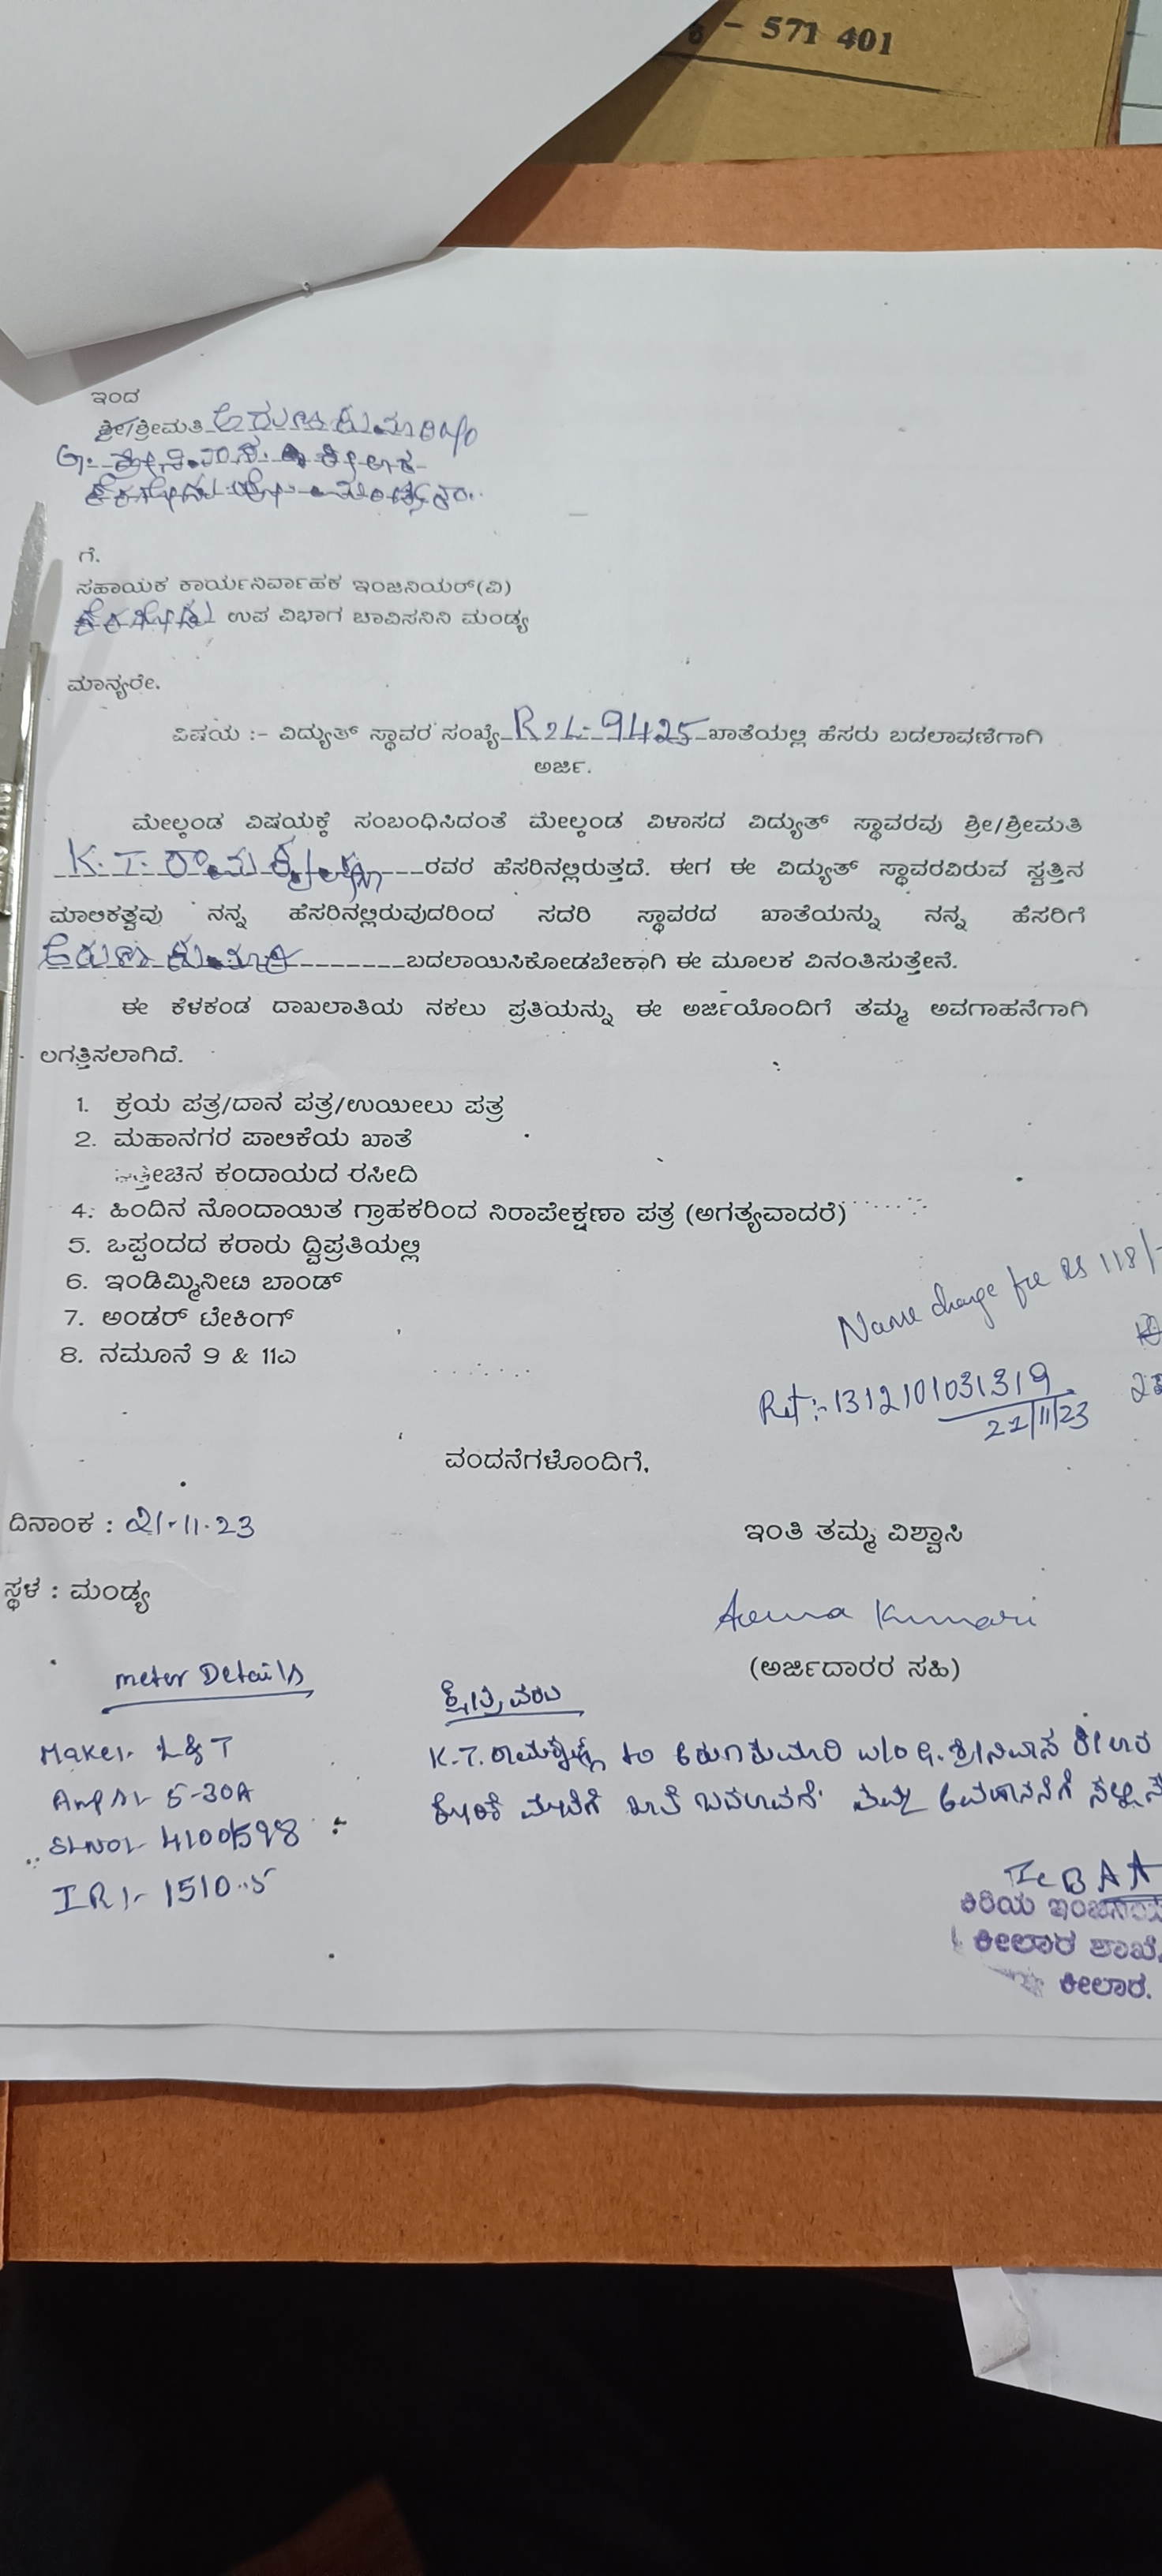 - 571 401
ಇಂದ
ಶ್ರೀ/ಶ್ರೀಮತಿ ಅರುಣಕುಮಾರಿ
ಗೆ.
ಸಹಾಯಕ ಕಾರ್ಯನಿರ್ವಾಹಕ ಇಂಜನಿಯರ್(ವಿ)
ಉಪ ವಿಭಾಗ ಚಾವಿಸನಿನಿ ಮಂಡ್ಯ
ಮಾನ್ಯರೇ.
ವಿಷಯ :- ವಿದ್ಯುತ್ ಸ್ಥಾವರ ಸಂಖ್ಯೆ 9425 ಖಾತೆಯಲ್ಲಿ ಹೆಸರು ಬದಲಾವಣೆಗಾಗಿ
ಅರ್ಜಿ.
ಮೇಲ್ಕಂಡ ವಿಷಯಕ್ಕೆ ಸಂಬಂಧಿಸಿದಂತೆ ಮೇಲ್ಕಂಡ ವಿಳಾಸದ ವಿದ್ಯುತ್ ಸ್ಥಾವರವು ಶ್ರೀ/ಶ್ರೀಮತಿ
K.T. ರಾಮಕೃಷ್ಣ ರವರ ಹೆಸರಿನಲ್ಲಿರುತ್ತದೆ. ಈಗ ಈ ವಿದ್ಯುತ್ ಸ್ಥಾವರವಿರುವ ಸ್ವತ್ತಿನ
ಮಾಲಿಕತ್ವವು ನನ್ನ ಹೆಸರಿನಲ್ಲಿರುವುದರಿಂದ ಸದರಿ ಸ್ಥಾವರದ ಖಾತೆಯನ್ನು ನನ್ನ ಹೆಸರಿಗೆ
ಅರುಣಕುಮಾರಿ ಬದಲಾಯಿಸಿಕೋಡಬೇಕಾಗಿ ಈ ಮೂಲಕ ವಿನಂತಿಸುತ್ತೇನೆ.
ಈ ಕೆಳಕಂಡ ದಾಖಲಾತಿಯ ನಕಲು ಪ್ರತಿಯನ್ನು ಈ ಅರ್ಜಿಯೊಂದಿಗೆ ತಮ್ಮ ಅವಗಾಹನೆಗಾಗಿ
ಲಗತ್ತಿಸಲಾಗಿದೆ.
1. ಕ್ರಯ ಪತ್ರ/ದಾನ ಪತ್ರ/ಉಯೀಲು ಪತ್ರ
2. ಮಹಾನಗರ ಪಾಲಿಕೆಯ ಖಾತೆ
ಕಂದಾಯದ ರಸೀದಿ
4. ಹಿಂದಿನ ನೊಂದಾಯಿತ ಗ್ರಾಹಕರಿಂದ ನಿರಾಪೇಕ್ಷಣಾ ಪತ್ರ (ಅಗತ್ಯವಾದರೆ)
5. ಒಪ್ಪಂದದ ಕರಾರು ದ್ವಿಪ್ರತಿಯಲ್ಲಿ
6. ಇಂಡಿಮ್ಮಿನೀಟಿ ಬಾಂಡ್
7. ಅಂಡರ್ ಟೇಕಿಂಗ್
8. ನಮೂನೆ 9 & 11ಎ
Name change fee Rs 118/-
Ret:- 1312101031319
21/11/23
ವಂದನೆಗಳೊಂದಿಗೆ,
ದಿನಾಂಕ : 21-11-23
ಇಂತಿ ತಮ್ಮ ವಿಶ್ವಾಸಿ
ಸ್ಥಳ : ಮಂಡ್ಯ
Aruna Kumari
(ಅರ್ಜಿದಾರರ ಸಹಿ)
meter Details
Make:- L&T
Amps:- 5-30A
Slno:- 41001598
IR:- 1510.5
K.T. ರಾಮಕೃಷ್ಣ to ಅರುಣಕುಮಾರಿ w/o G. ಶ್ರೀನಿವಾಸ ಕೀಲಾರ
ಕಿರಿಯ
ಕೀಲಾರ ಶಾಖೆ,
ಕೀಲಾರ.